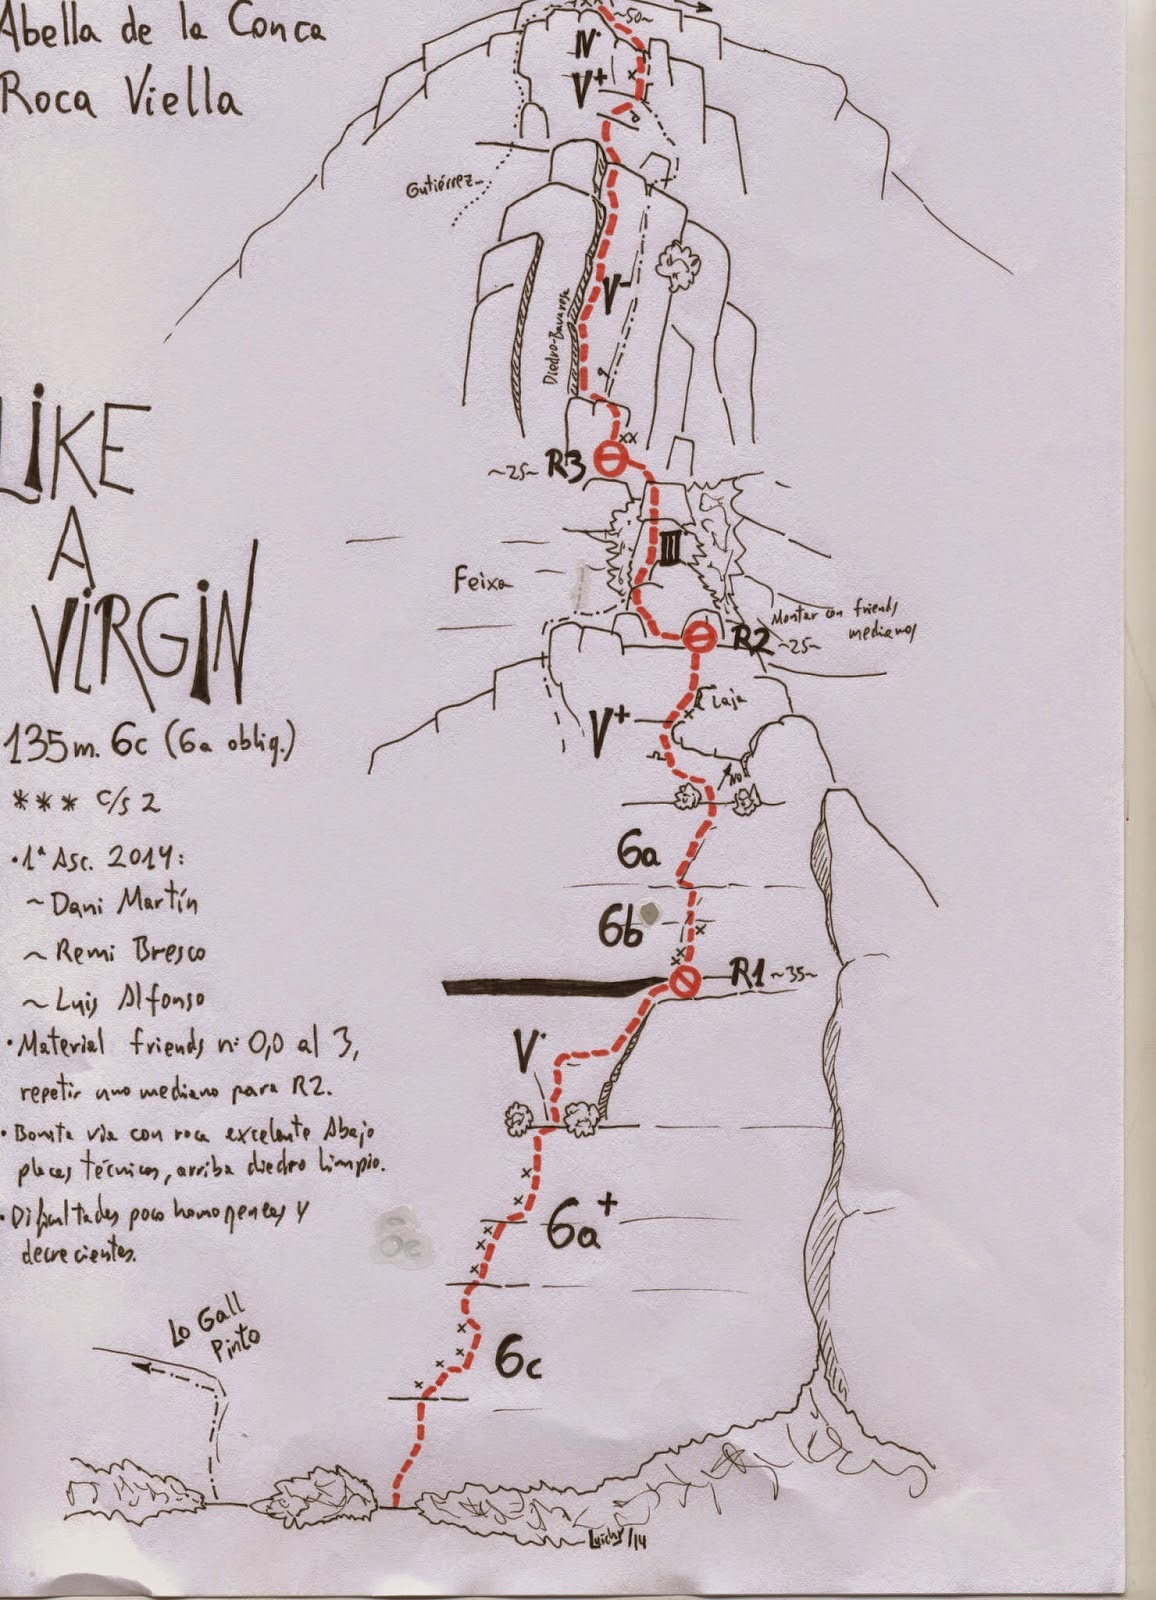 Abella de la Conca
Roca Viella
~50~
IV
V+
Gutiérrez
V-
Diedro-Bavaresa
~25~ R3
III
Feixa
Montar con friends
medianos
R2 ~25~
Laja
V+
NO
6a
6b
R1 ~35~
V
6a+
6c
LIKE
A
VIRGIN
135m. 6c (6a oblig.)
*** c/s 2
· 1ª Asc. 2014:
~ Dani Martín
~ Remi Bresco
~ Luis Alfonso
· Material friends nº 0,0 al 3,
repetir uno mediano para R2.
· Bonita vía con roca excelente Abajo
placas técnicas, arriba diedro limpio.
· Dificultades poco homogeneas y
decrecientes.
Lo Gall
Pinto
Luichy/14